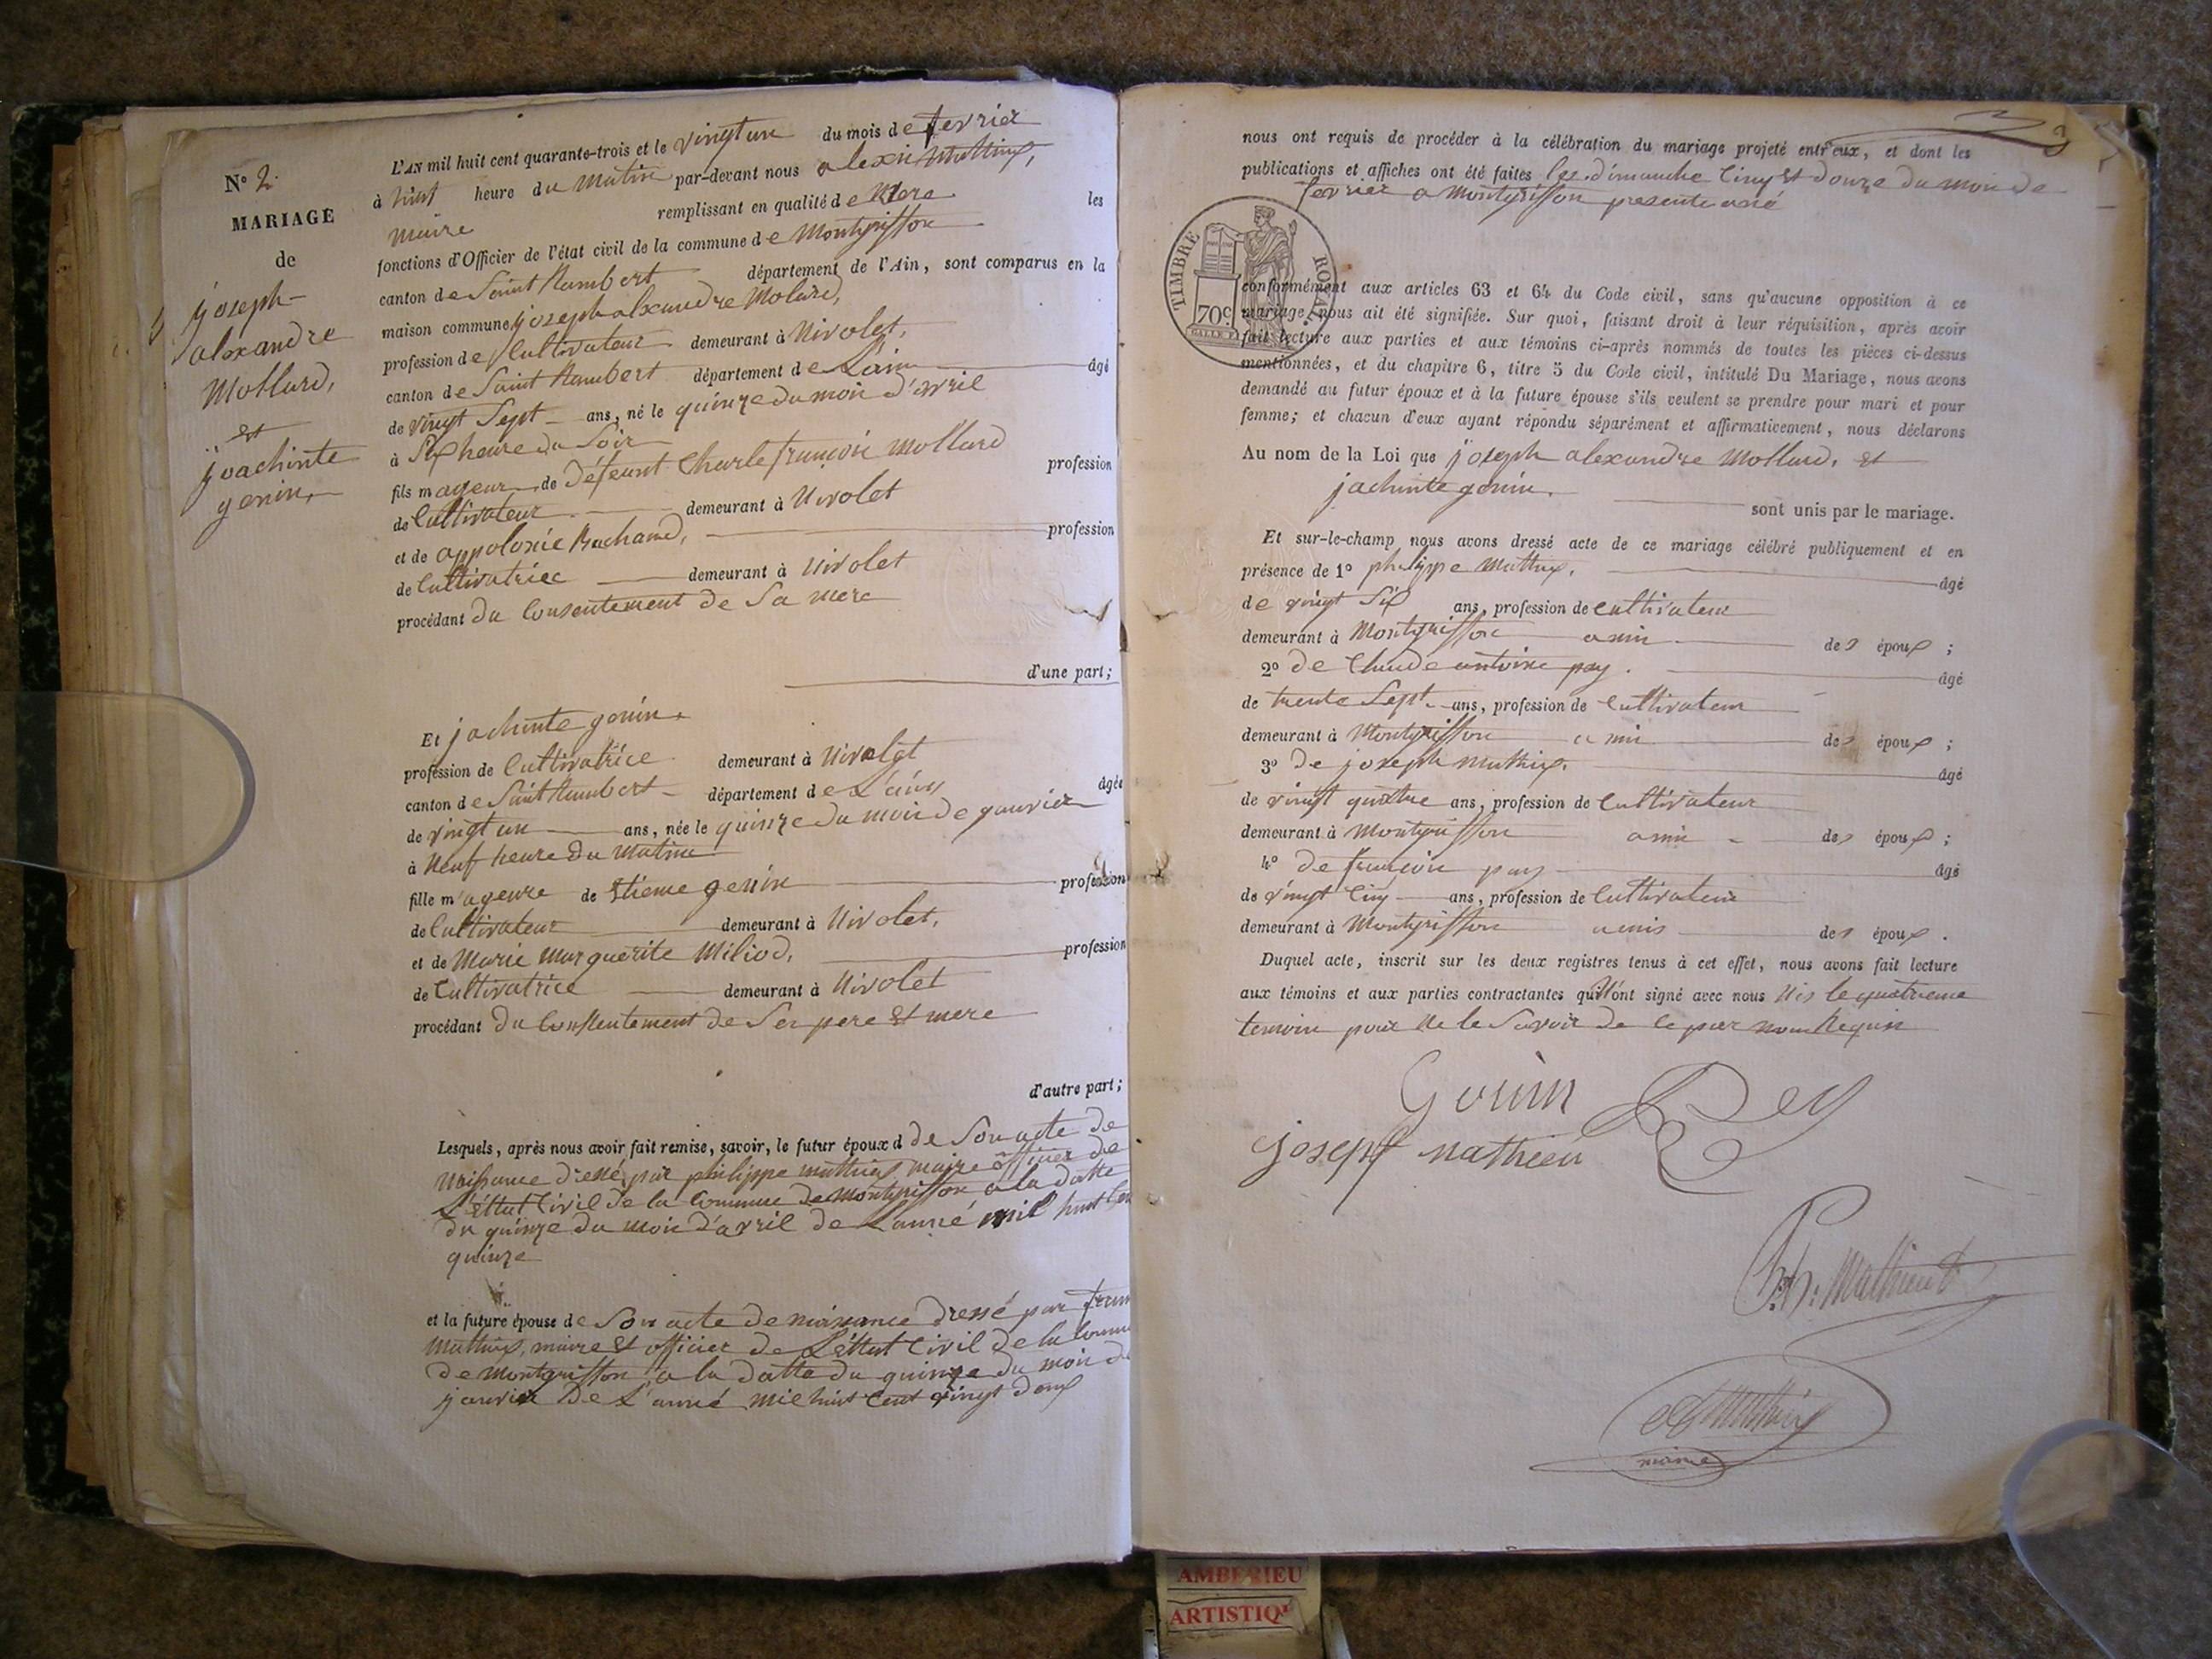 N° 2.
MARIAGE
de
joseph
alexandre
Mollard,
et
joachinte
genin,
L'AN mil huit cent quarante-trois et le vingt un du mois de fevrier
à huit heure du matin par-devant nous alexis Mathieu,
maire remplissant en qualité de Mere les
fonctions d'Officier de l'état civil de la commune de Montgriffon
canton de Saint Rambert département de l'Ain, sont comparus en la
maison commune joseph alexandre Molard,
profession de Cultivateur demeurant à Nivolet,
canton de Saint Rambert département de L'ain âgé
de vingt Sept ans, né le quinze du mois d'avril
à Six heure du Soir
fils mageur de Défeunt Charle françois Mollard profession
de Cultivateur demeurant à Nivolet
et de appolonie Buchard, profession
de Cultivatrice demeurant à Nivolet
procédant du Consentement de Sa mere
d'une part;
Et jachinte genin,
profession de Cultivatrice demeurant à Nivolet
canton de Saint Rambert département de L'ain âgée
de vingt un ans, née le quinze du mois de janvier
à Neuf heure Du Matin
fille mageure de Etiene genin profession
de Cultivateur demeurant à Nivolet,
et de Marie Marguerite Miliod, profession
de Cultivatrice demeurant à Nivolet
procédant du Consentement de Ses pere et mere
d'autre part;
Lesquels, après nous avoir fait remise, savoir, le futur époux d de Son acte de
Naissance dressé par philippe mathieu maire officier de
L'éttat Civil de la Commune de Montgriffon a la datte
du quinze du mois d'avril de L'anné mil huit Cent
quinze
et la future épouse de Son acte de naissance dressé par
Mathieu, maire et officier de L'éttat Civil de la
de Montgriffon a la datte du quinze du mois de
janvier De L'anné mil huit Cent vingt deux
nous ont requis de procéder à la célébration du mariage projeté entr'eux, et dont les
publications et affiches ont été faites les dimanche Cinq et Douze du mois de
fevrier a Montgriffon presente anné
TIMBRE ROYAL
70c
conformément aux articles 63 et 64 du Code civil, sans qu'aucune opposition à ce
mariage nous ait été signifiée. Sur quoi, faisant droit à leur réquisition, après avoir
fait lecture aux parties et aux témoins ci-après nommés de toutes les pièces ci-dessus
mentionnées, et du chapitre 6, titre 5 du Code civil, intitulé Du Mariage, nous avons
demandé au futur époux et à la future épouse s'ils veulent se prendre pour mari et pour
femme; et chacun d'eux ayant répondu séparément et affirmativement, nous déclarons
Au nom de la Loi que joseph alexandre Mollard, et
jachinte genin.
sont unis par le mariage.
Et sur-le-champ nous avons dressé acte de ce mariage célébré publiquement et en
présence de 1° philippe Mathieu, âgé
de vingt Six ans, profession de cultivateur
demeurant à Montgriffon amis des époux;
2° de Claude antoine pey. âgé
de trente Sept ans, profession de Cultivateur
demeurant à Montgriffon amis des époux;
3° de joseph mathieu. âgé
de vingt quatre ans, profession de Cultivateur
demeurant à Montgriffon amis des époux;
4° de françois pey âgé
de vingt Cinq ans, profession de Cultivateur
demeurant à Montgriffon amis des époux.
Duquel acte, inscrit sur les deux registres tenus à cet effet, nous avons fait lecture
aux témoins et aux parties contractantes qui N'ont signé avec nous Nis le quatrieme
temoin pour Ne le Savoir de Ce par nous Requis
Genin
Pey
joseph mathieu
Ph: Mathieu
mairie
AMBERIEU
ARTISTIQ